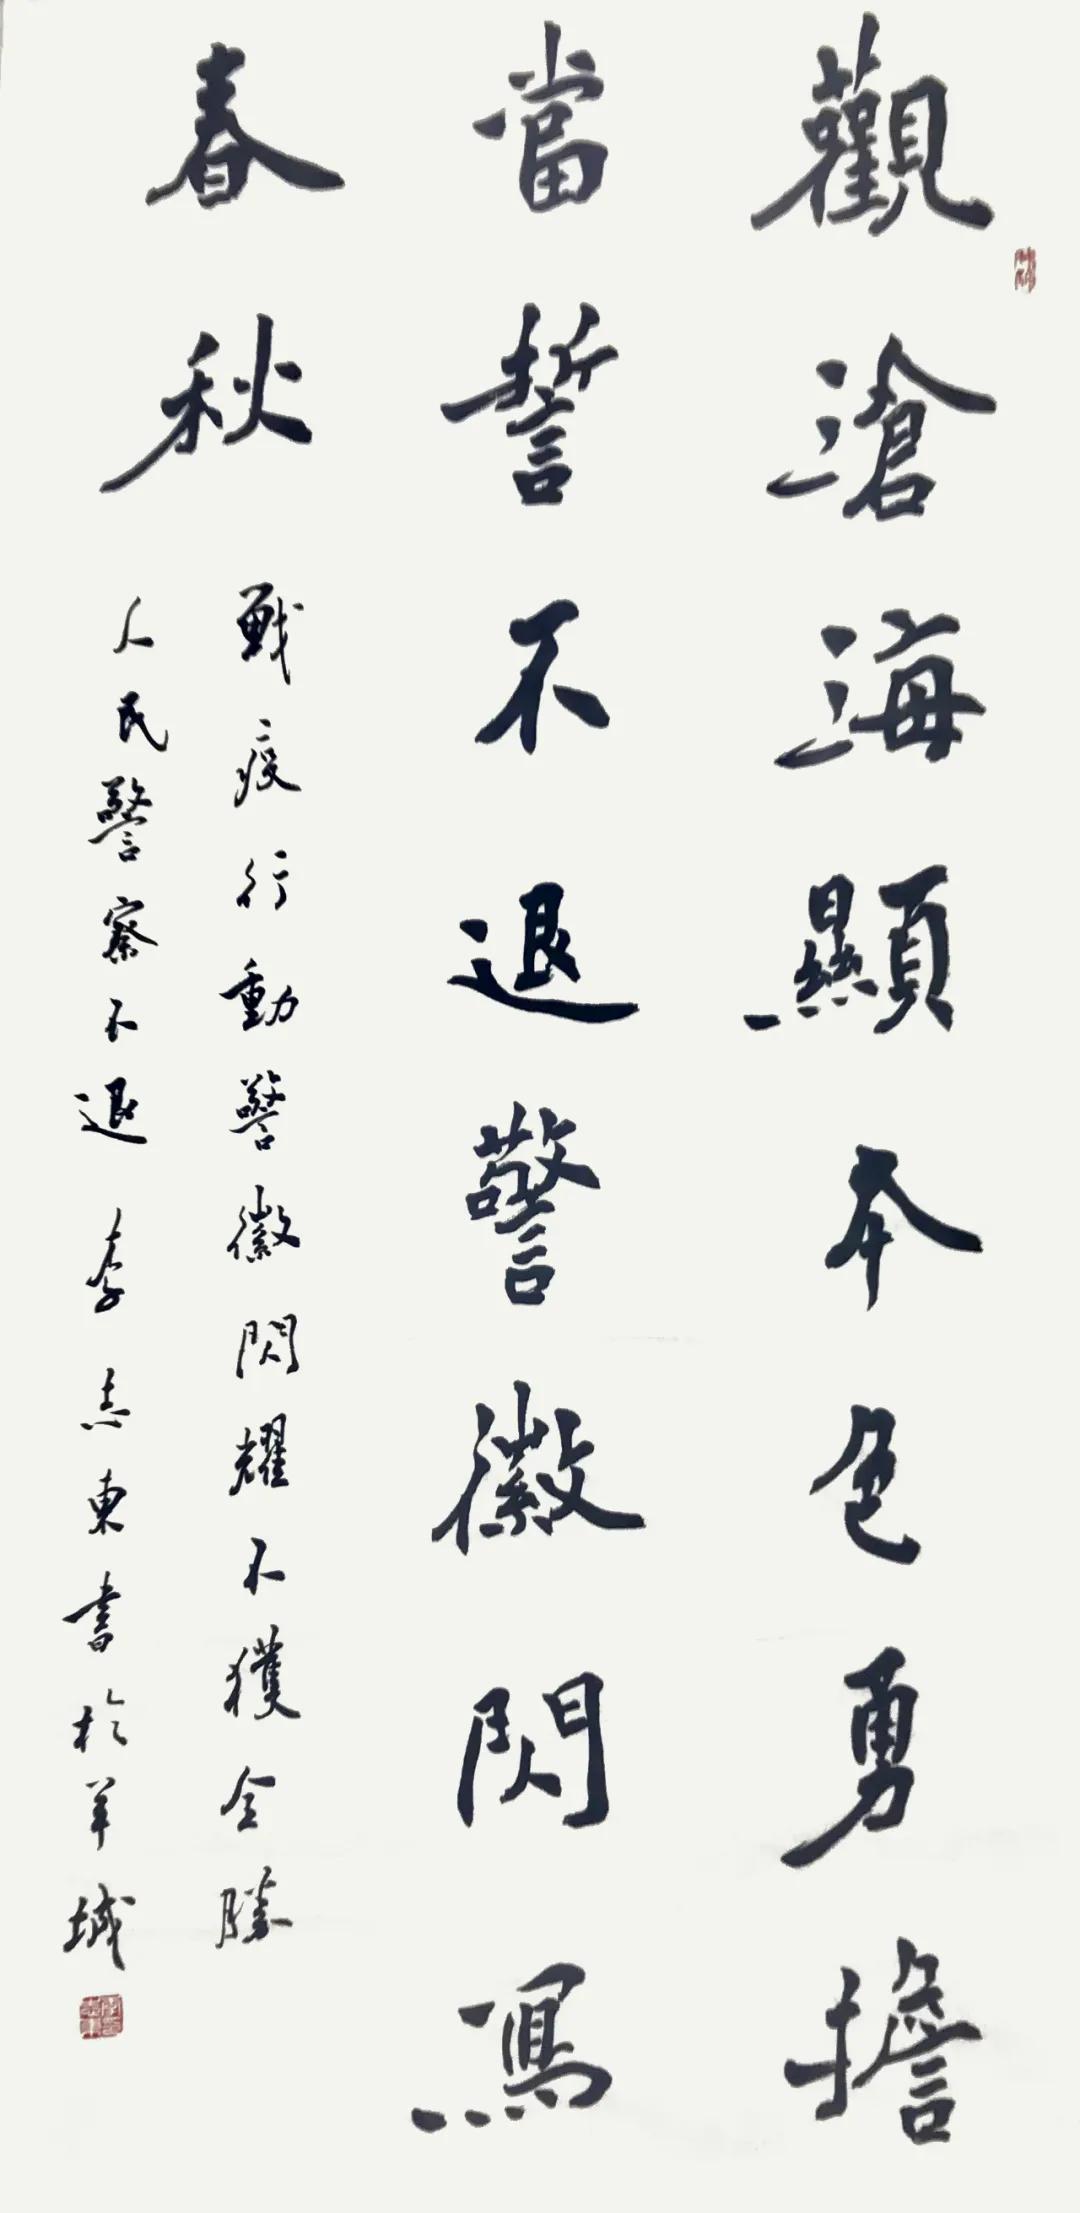 觀滄海顯本色勇擔
當誓不退警徽閃寫
春秋
戰疫行動警徽閃耀不獲全勝
人民警察不退李志東書於羊城